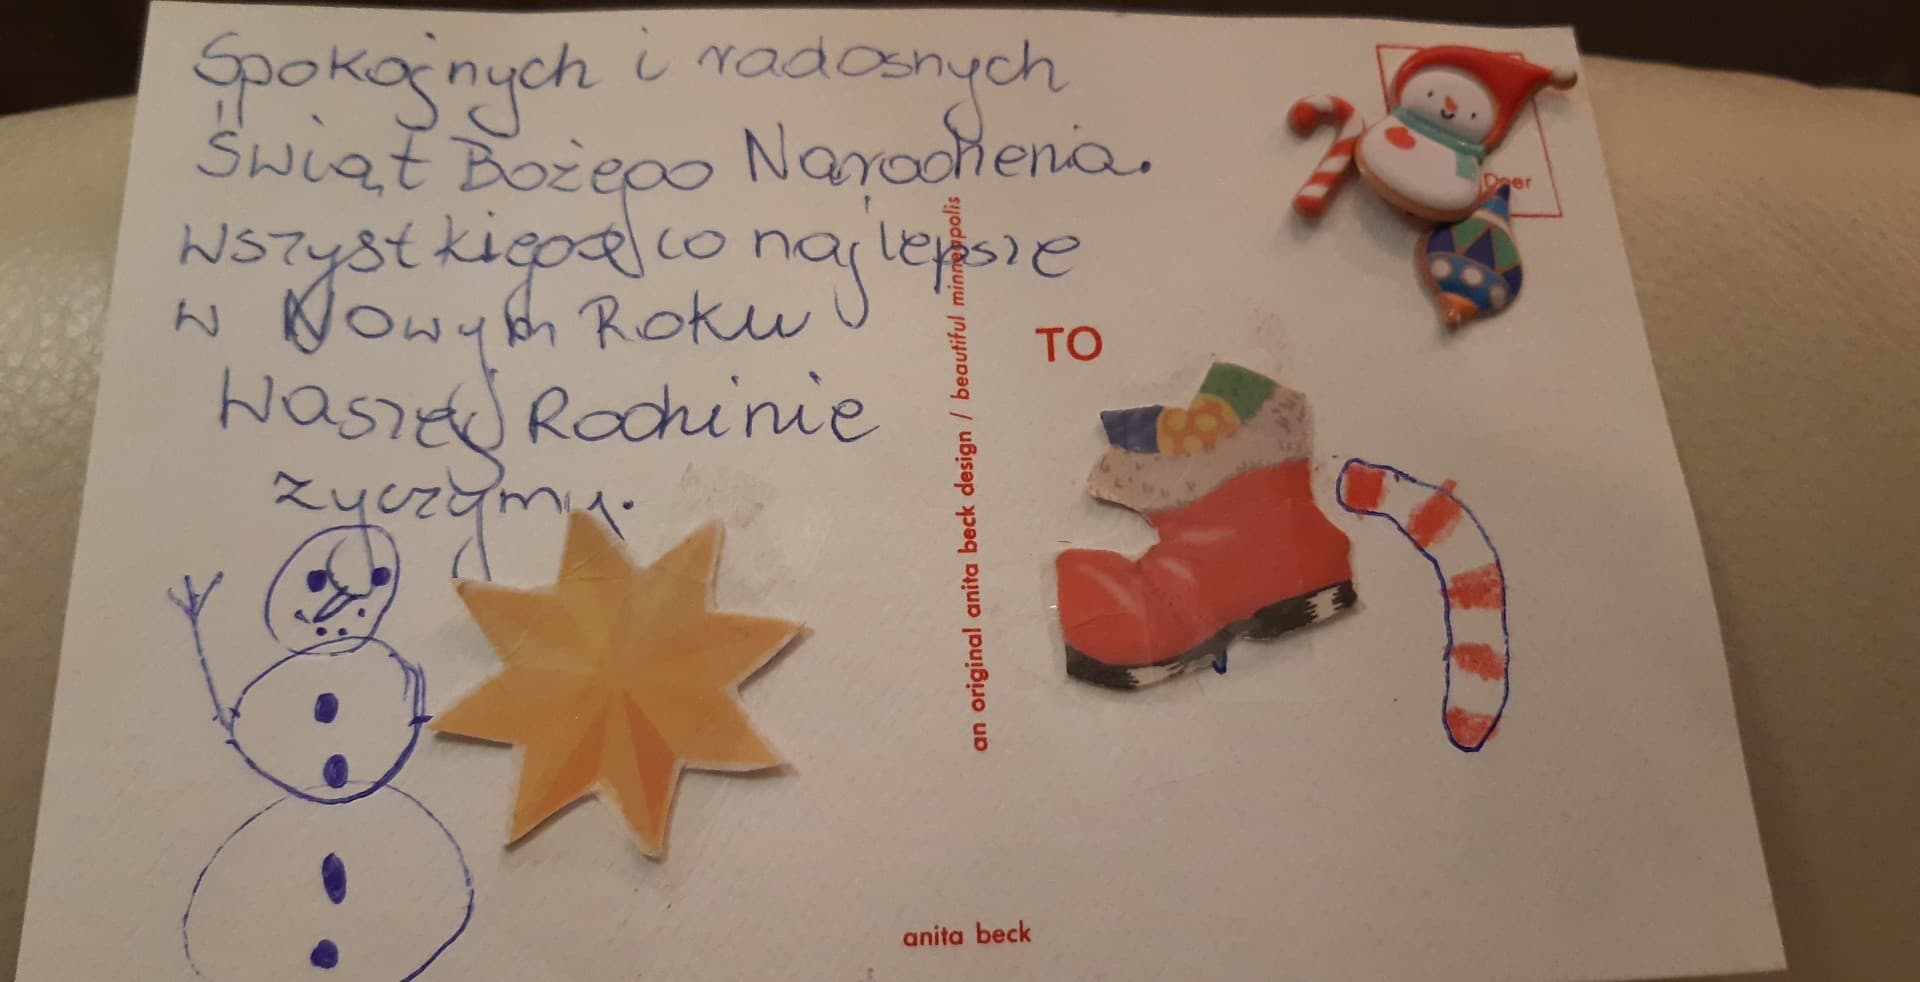 Spokojnych i radosnych
Świąt Bożego Narodzenia.
wszystkiego co najlepsze
w Nowym Roku
Waszej Rodzinie
życzymy.
an original anita beck design / beautiful minneapolis
TO
anita beck